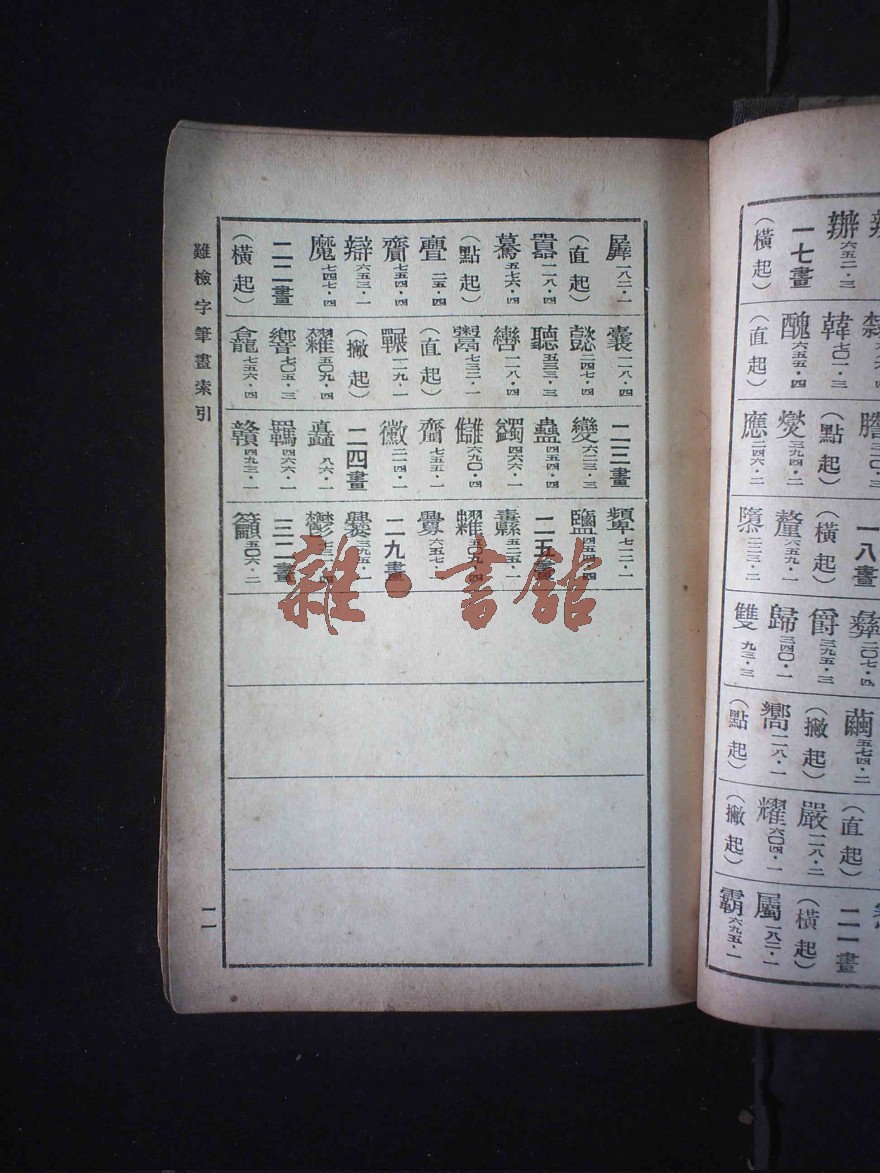 難檢字筆畫索引
一一
羼一八二·一
(直起)
囂一一八·四
驀五七六·四
(點起)
亹二五·四
齎七五四·四
辯六五三·一
魔七四七·四
二二畫
(橫起)
囊一一八·四
懿二四七·四
聽五三三·三
轡一一八·四
鬻七三二·一
(直起)
囅一一九·一
(撇起)
糴五〇九·四
響七〇五·三
龕七五六·四
二三畫
變六二三·三
蠱四五四·四
蠲四六六·一
讎六九〇·四
齏七五五·一
徽二一四·一
二四畫
矗八六·一
羈四六六·一
贛四九三·一
顰七一三·一
鹽四五四·四
二五畫
纛五二五·一
糶五〇九·四
釁六五七·一
二九畫
爨三九五·一
鬱
三二畫
籲五〇六·二
辦六五二·三
一七畫
(橫起)
隸
韓七〇一·三
醜六五五·四
(直起)
膽三〇·三
(點起)
燮三九四·二
應二四六·二
一八畫
(橫起)
釐六五九·一
隳二二三·二
彝二〇七·四
爵三九五·三
歸三四〇·一
雙九三·三
繭五七四·二
(撇起)
嚮一一八·一
(點起)
(直起)
嚴一一八·二
耀六〇四·一
(撇起)
二一畫
(橫起)
屬一八二·一
霸六九五·一
雜·書館